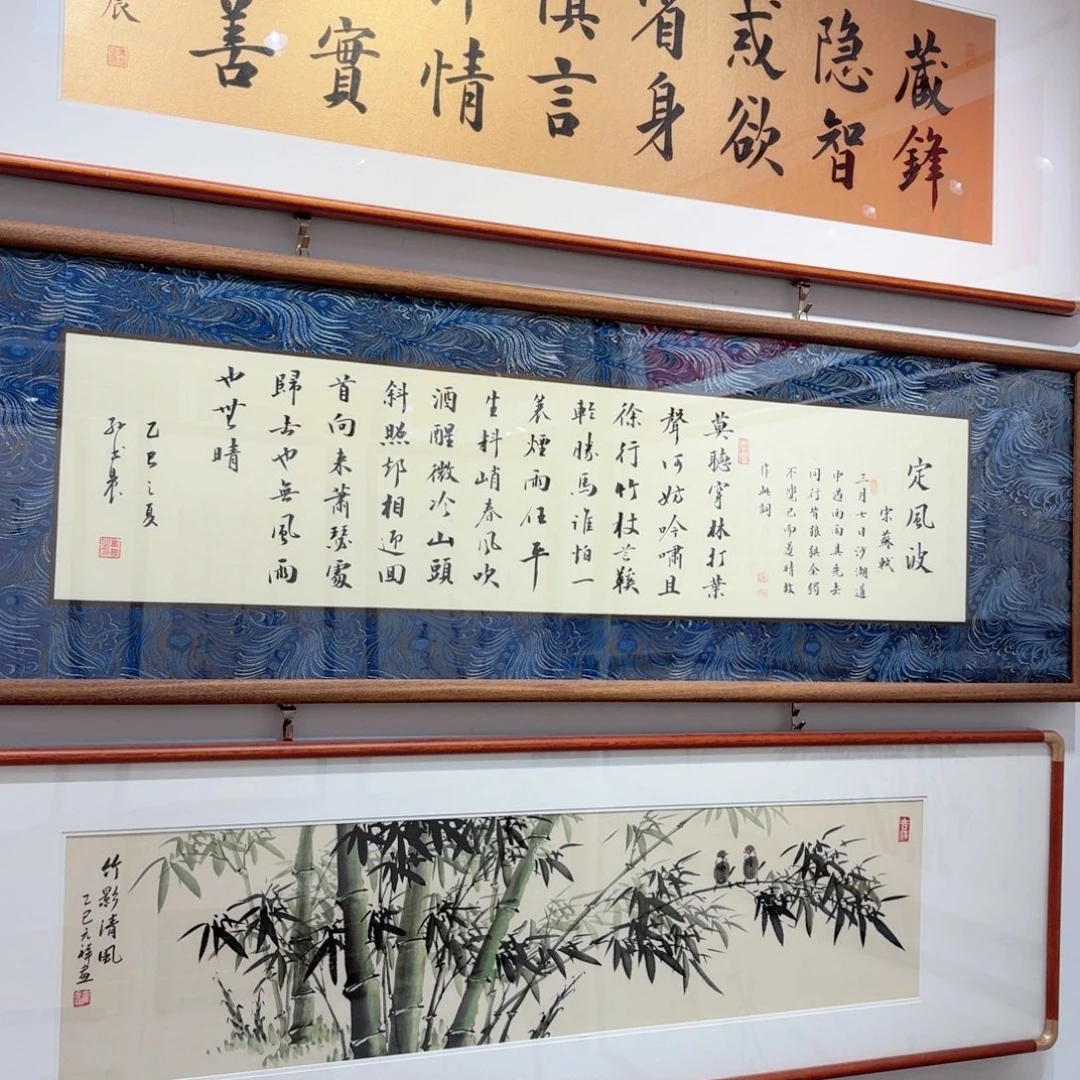 藏鋒
隐智
戒欲
省身
慎言
情
實
善
辰
定風波
宋蘇軾
三月七日沙湖道
中遇雨雨具先去
同行皆狼狽余獨
不覺已而遂晴故
作此詞
莫聽穿林打葉
聲何妨吟嘯且
徐行竹杖芒鞋
輕勝馬谁怕一
蓑煙雨任平
生料峭春風吹
酒醒微冷山頭
斜照却相迎回
首向来蕭瑟處
歸去也無風雨
也無晴
乙巳之夏
竹影清風
乙巳元祥画
吉祥